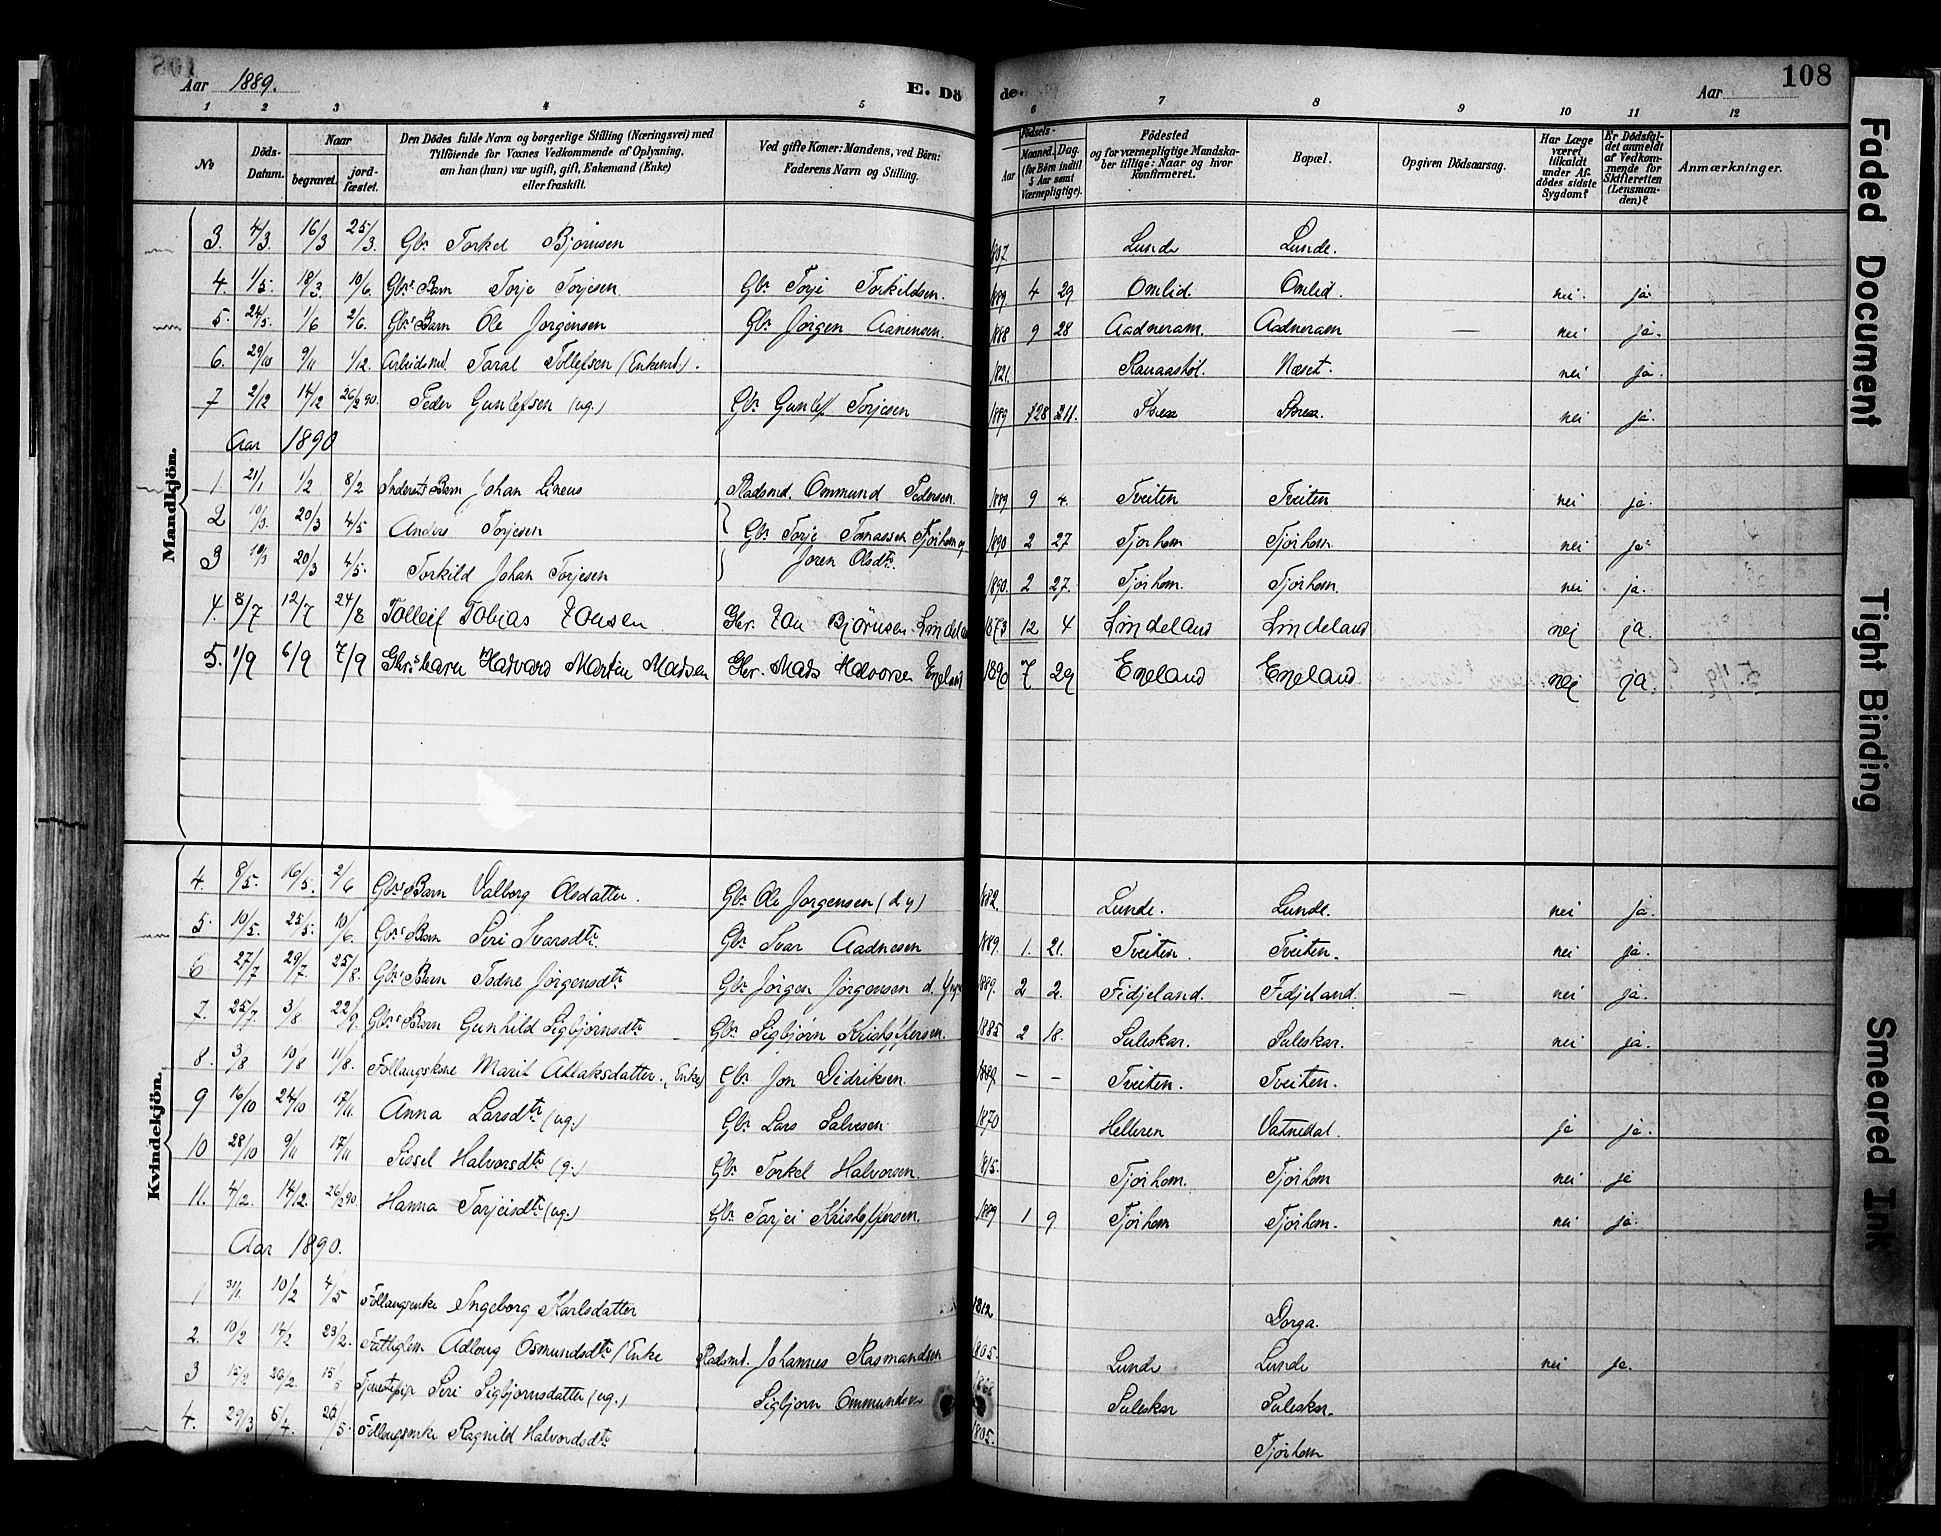 Aar 1889. E. Döde. Aar 108
1 2 3 4 5 6 7 8 9 10 11 12
No
Döds-Datum.
Naar
begravet.
jord-fæstet.
Den Dödes fulde Navn og borgerlige Stilling (Næringsvei) med Tilföiende for Voxnes Vedkommende af Oplysning, om han (hun) var ugift, gift, Enkemand (Enke) eller fraskilt.
Ved gifte Koner: Mandens, ved Börn: Faderens Navn og Stilling.
Födsels-
Aar
Maaned. Dag.
(for Börn indtil 5 Aar samt Værnepligtige).
Födested
og for værnepligtige Mandskaber tillige: Naar og hvor konfirmeret.
Bopæl.
Opgiven Dödsaarsag.
Har Læge været tilkaldt under Afdödes sidste Sygdom?
Er Dödsfaldet anmeldt af Vedkommende for Skifteretten (Lensmanden)?
Anmærkninger.
Mandkjön.
3. 4/3. 16/3 25/3. Gbr. Torkel Bjørnsen 1807. Lunde Lunde.
4. 1/5. 18/3. 10/6. Gbr.s Barn Torje Torjesen. Gbr. Torje Torkildsen. 1889 4 29 Omlid. Omlid. nei. ja.
5. 24/5. 1/6 2/6. Gbr.s Barn Ole Jörgensen Gbr. Jörgen Aanensen. 1888 9 28 Aadneram. Aadneram — nei ja.
6. 29/10 9/11 1/12. Arbeidsmd. Taral Tollefsen (Enkemd.). 1821. Næset. nei ja.
7 2/12 14/12 26/2 90. Peder Gunlefsen (ug.) Gbr. Gunlef Torjesen 1889 nei ja.
Aar 1890
1 21/1 1/2 8/2 Inderst's Barn Johan Lineus Pladsmd. Ommund Pedersen. 1889 9 4. Tveiten Tveiten. nei ja.
2 10/3. 20/3 4/5 Anders Torjesen Gbr. Torje Tomassen Tjörhom og 1890 2 27 Tjorhom Tjörhom. nei ja.
3 10/3 20/3 4/5. Torkild Johan Torjesen Joren Olsdtr. 1890. 2 27. Tjorhom. Tjörhom. nei ja.
4. 8/7 12/7 24/8 Tolleif Tobias Jonsen Gbr. Jon Björnsen Lindeland 1873 12 4 Lindeland Lindeland nej ja.
5. 1/9 6/9 7/9 Gbr.s barn Havard Martin Madsen Gbr. Mads Halvorsen Eneland 1890 7 29 Eneland Eneland nej ja.
Kvindekjön.
4. 8/5. 16/5. 2/6 Gbr.s Barn Valborg Olsdatter. Gbr. Ole Jorgensen (d y) 1882. Lunde. Lunde. nei ja.
5. 10/5. 25/5. 10/6. Gbr.s Barn Siri Ivarsdtr. Gbr. Ivar Aadnesen 1889. 1. 21. Tveiten. Tveiten. nei ja.
6 27/7 29/7. 25/8. Gbr.s Barn Todne Jörgensdtr. Gbr. Jörgen Jörgensen d. Yngre 1889. 2 2. Fidjeland. Fidjeland. — nei ja.
7. 25/7. 3/8 22/9. Gbr.s Barn Gunhild Sigbjørnsdtr. Gbr. Sigbjörn Kristoffersen. 1885 2 18. Suleskar. Suleskar. nei ja.
8. 3/8 10/8 11/8. Follaugskone Marit Atlaksdatter. (Enke) Gbr. Jon Didriksen. 1889 — — Tveiten. Tveiten.
9 16/10 24/10 17/11. Anna Larsdtr. (ug.) Gbr. Lars Salvesen 1870 Helleren Vatnedal. ja ja.
10 28/10 9/11 17/11 Sissel Halvorsdtr. (g.) Gbr. Torkel Halvorsen. 1815. Tjorhom. Tjörhom nei ja
11. 4/12. 14/12. 26/2 90. Hanna Tarjeisdtr. (ug.) Gbr. Tarjei Kristoffersen. 1889 1 9. Tjörhom Tjörhom. nei ja.
Aar 1890.
1 31/1. 10/2 4/5 Follaugsenke Ingeborg Karlsdatter 1812 Dorga.
2. 10/2 14/2 23/2. Fattiglem Adloug Osmundsdtr. (Enke Pladsmd. Johannes Rasmundsen 1805. Lunde Lunde nei ja.
3 15/2 26/2. Tjenestepige Siri Sigbjornsdatter (ug.) Sigbjorn Ommundsen 1868 Suleskar Suleskar.
4. 29/3 5/4. Follaugsenke Ragnild Halvordsdtr. 1805. Tjörhom
Faded Document
Tight Binding
Smeared Ink